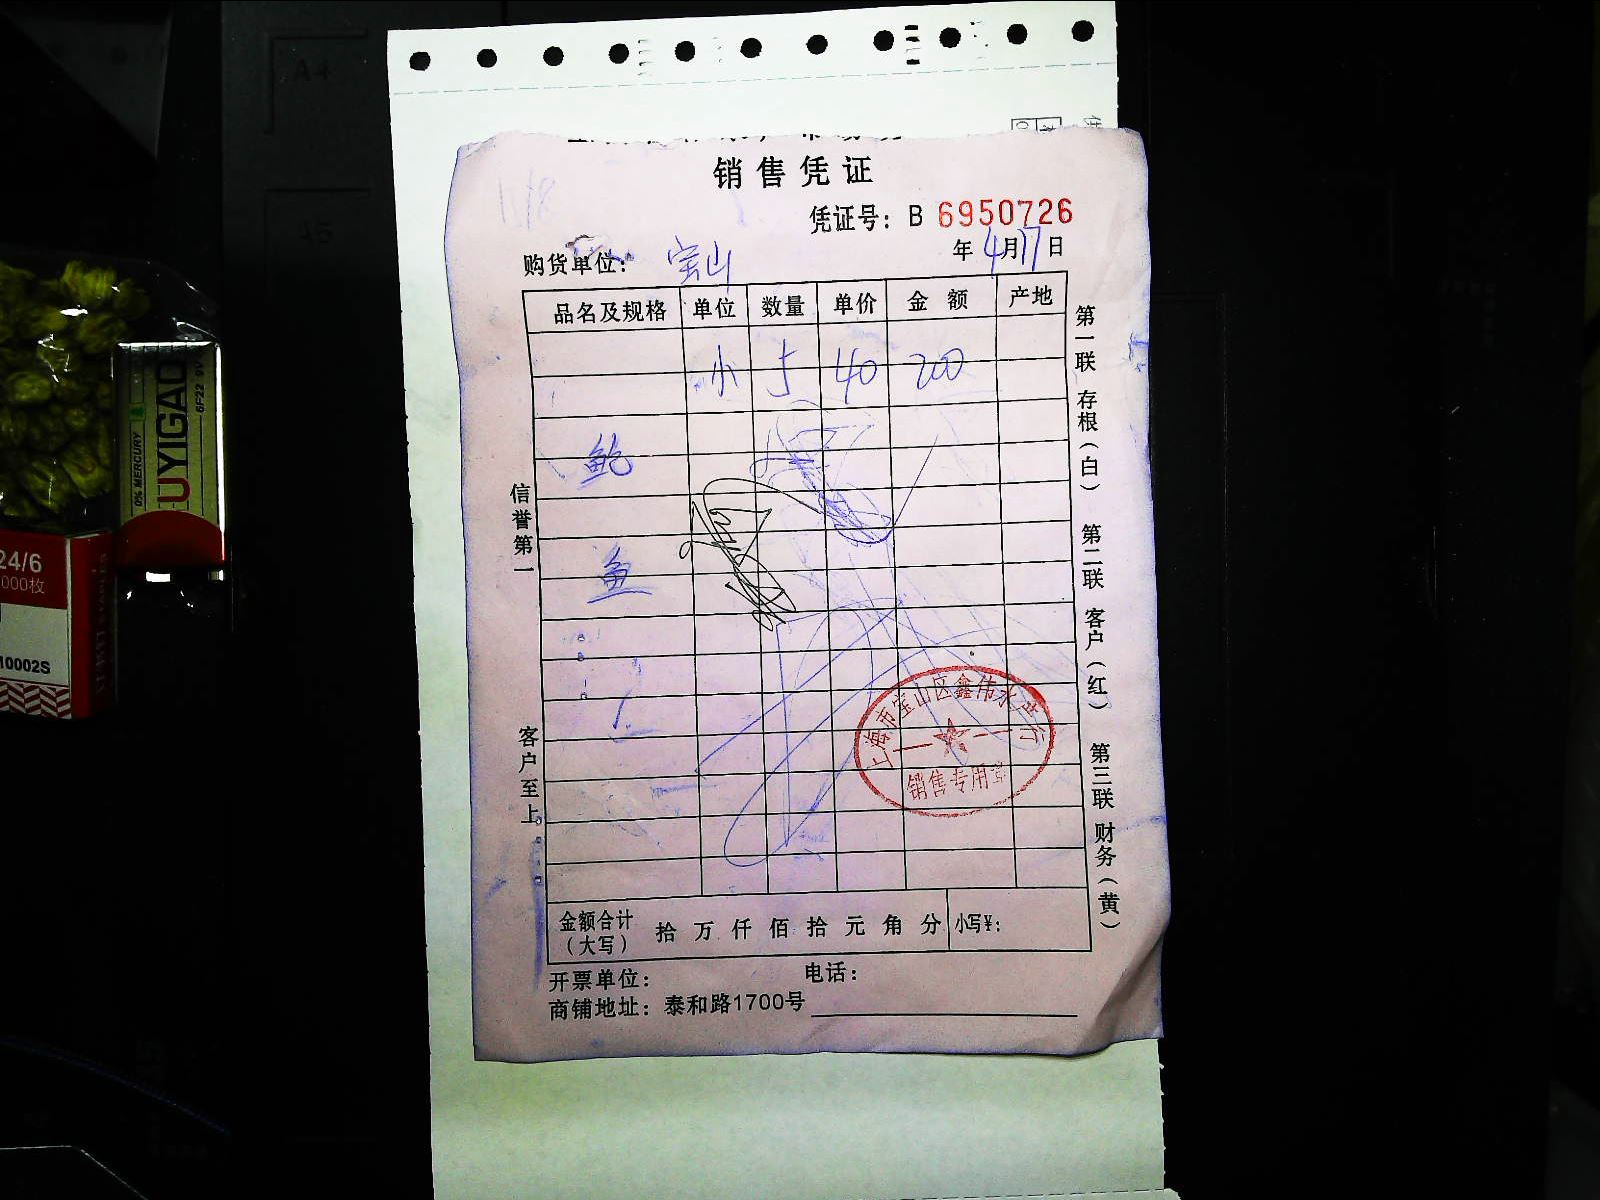 销售凭证
凭证号：B 6950726
购货单位：宝山 年4月17日
品名及规格 单位 数量 单价 金额 产地
小 5 40 200
鲍
鱼
信誉第一
客户至上
第一联 存根（白） 第二联 客户（红） 第三联 财务（黄）
上海市宝山区鑫伟水产行
销售专用章
金额合计（大写） 拾 万 仟 佰 拾 元 角 分 小写¥：
开票单位： 电话：
商铺地址：泰和路1700号
A4
A5
0% MERCURY
UYIGAO
6F22 9V
24/6
000枚
10002S